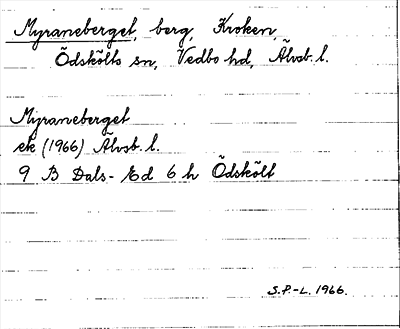 Myraneberget, berg, Kroken,
Ödskölts sn, Vedbo hd, Älvsb. l.
Myraneberget
ek (1966) Älvsb. l.
9 B Dals-Ed 6 h Ödskölt
S.P.-L. 1966.